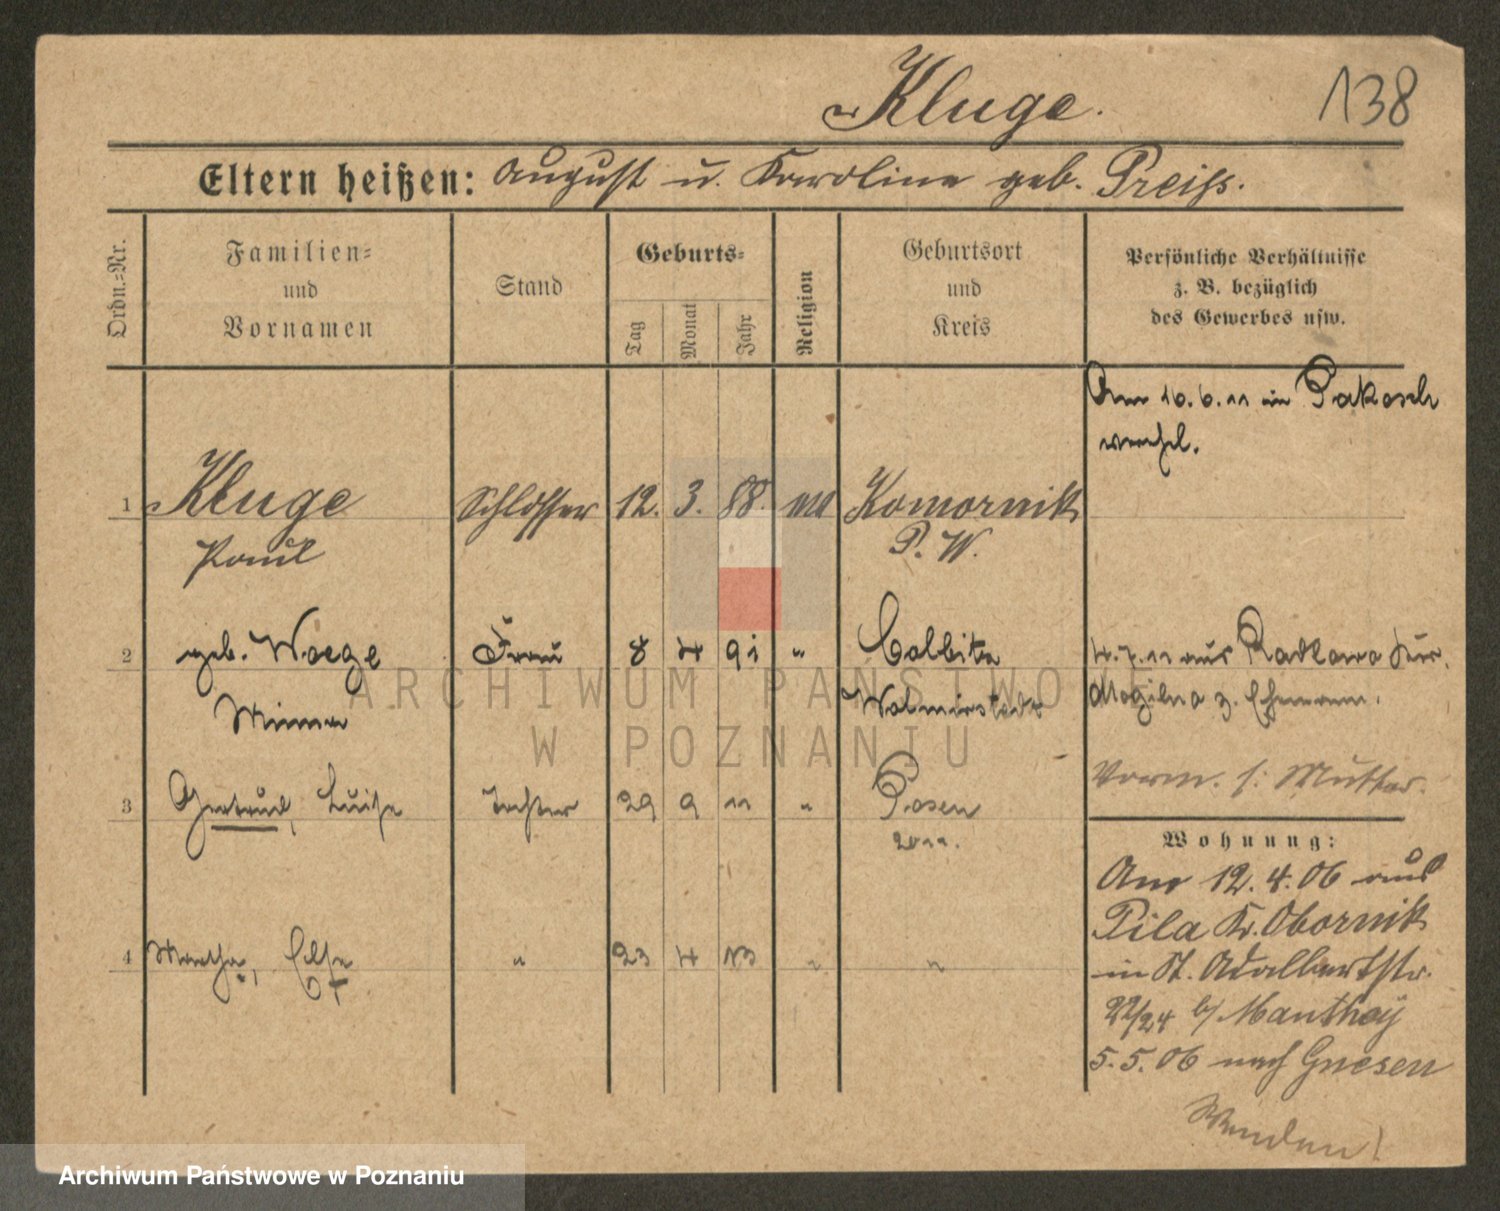 Kluge.
138
Eltern heißen: August u. Karoline geb. Preiß.
Ordn.=Nr.
Familien=
und
Vornamen
Stand
Geburts=
Tag
Monat
Jahr
Religion
Geburtsort
und
Kreis
Persönliche Verhältnisse
z. B. bezüglich
des Gewerbes usw.
Am 10.6.11 in Pakosch
1 Kluge Schlosser 12. 3. 88. Komornik
Paul P. W.
2 geb. Woege Frau 8 4 91 " Colbitz 4.7.11 aus Radlowo
Minna Wolmirstedt Mogilno z. Ehemann.
3 Gertrud, Luise Tochter 29 9 11 " Posen Vorm. s: Mutter.
2011.
4 Martha, Else " 23 4 13 " "
Wohnung:
Am 12.4.06 aus
Pila Kr. Obornik
in St. Adalbertstr.
22/24 b/ Manthey
5.5.06 nach Gnesen
Wenden!
ARCHIWUM PAŃSTWOWE
W POZNANIU
Archiwum Państwowe w Poznaniu